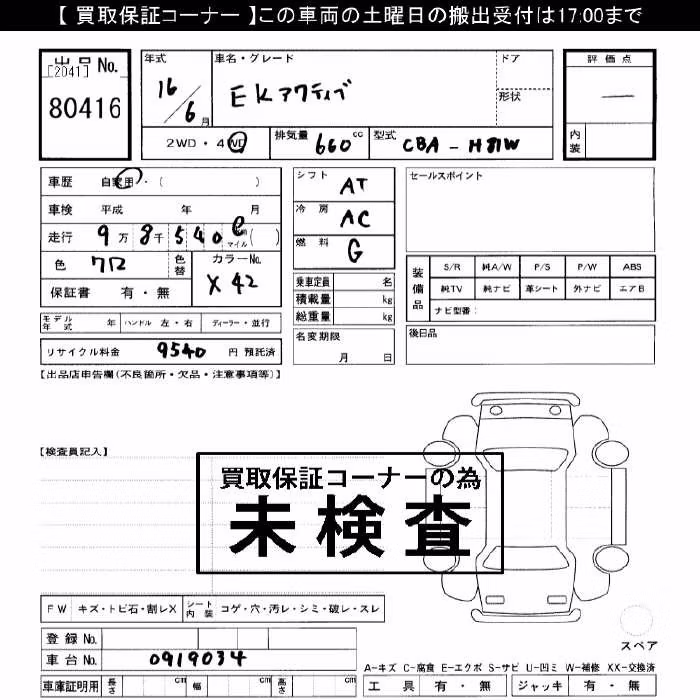 【 買取保証コーナー 】この車両の土曜日の搬出受付は17:00まで
出品 No.
[2041]
80416
年式
16/6月
車名・グレード
EKアクティブ
ドア
形状
2WD・4WD
排気量 660 cc
型式 CBA-H81W
評価点
—
内装
車歴 自家用・( )
車検 平成 年 月
走行 9万8千540 マイル( )
色 クロ
色替
カラーNo. X42
保証書 有・無
シフト AT
冷房 AC
燃料 G
乗車定員 名
積載量 kg
総重量 kg
名変期限
月 日
セールスポイント
装備品
S/R 純A/W P/S P/W ABS
純TV 純ナビ 革シート 外ナビ エアB
ナビ型番:
後日品
モデル年式 年 ハンドル 左・右 ディーラー・並行
リサイクル料金 9540 円 預託済
【出品店申告欄(不良箇所・欠品・注意事項等)】
【検査員記入】
買取保証コーナーの為
未検査
FW キズ・トビ石・割レX シート内装 コゲ・穴・汚レ・シミ・破レ・スレ
登録 No.
車台 No. 0919034
車庫証明用 長さ cm 幅 cm 高さ cm
スペア
A-キズ C-腐食 E-エクボ S-サビ U-凹ミ W-補修 XX-交換済
工具 有・無 ジャッキ 有・無